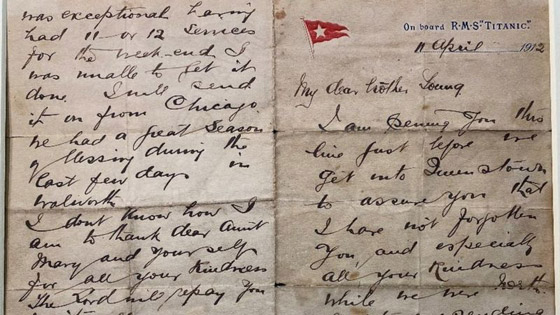 was exceptional having
had 11 or 12 Services
for the week-end I
was unable to get it
done. I will send
it on from Chicago
we had a great Season
of blessing during the
last few days in
Walworth
I dont know how I
am to thank dear Aunt
Mary and yourself
for all your Kindness
The Lord will repay you
On board R·M·S·"TITANIC".
11 April 1912
My dear brother Young
I am sening you this
line just before we
get into Queenstown
to assure you that
I have not forgotten
you and especially
all your Kindness
while we were North.